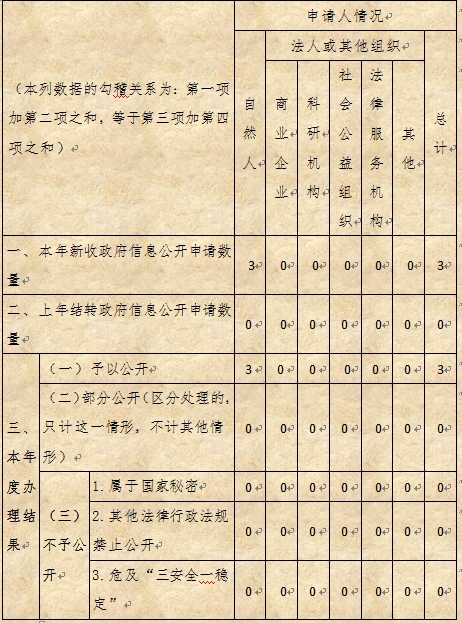 申请人情况
法人或其他组织
（本列数据的勾稽关系为：第一项
加第二项之和，等于第三项加第四
项之和）
自然人
商业企业
科研机构
社会公益组织
法律服务机构
其他
总计
一、本年新收政府信息公开申请数
量
3 0 0 0 0 0 3
二、上年结转政府信息公开申请数
量
0 0 0 0 0 0 0
三、
本年
度办
理结
果
（一）予以公开
3 0 0 0 0 0 3
（二）部分公开（区分处理的，
只计这一情形，不计其他情
形）
0 0 0 0 0 0 0
（三）
不予公
开
1.属于国家秘密
0 0 0 0 0 0 0
2.其他法律行政法规
禁止公开
0 0 0 0 0 0 0
3.危及“三安全一稳
定”
0 0 0 0 0 0 0